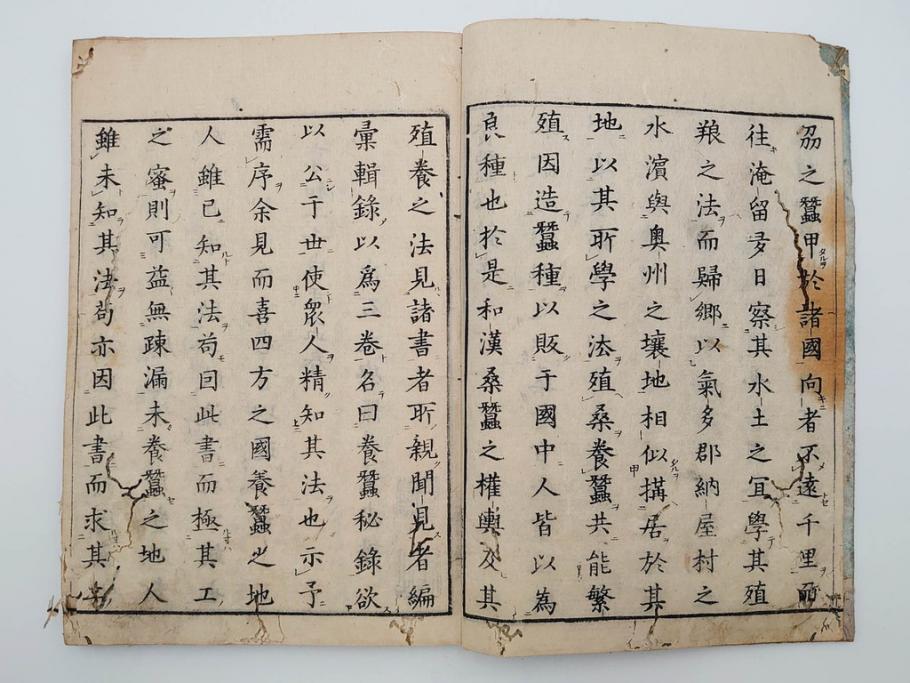 為之蠶甲於諸國向者不遠千里而
往淹留多日察其水土之宜學其殖
粮之法而歸鄉以氣多郡納屋村之
水濵與奥州之壤地相似搆居於其
地以其所學之法殖桑養蠶共能繁
殖因造蠶種以販于國中人皆以為
良種也於是和漢桑蠶之權輿及其
殖養之法見諸書者所親聞見者編
彙輯錄以爲三卷名曰養蠶秘錄欲
以公于世使衆人精知其法也示予
需序余見而喜四方之國養蠶之地
人雖已知其法苟因此書而極其工
之密則可益無疎漏未養蠶之地人
雖未知其法苟亦因此書而求其